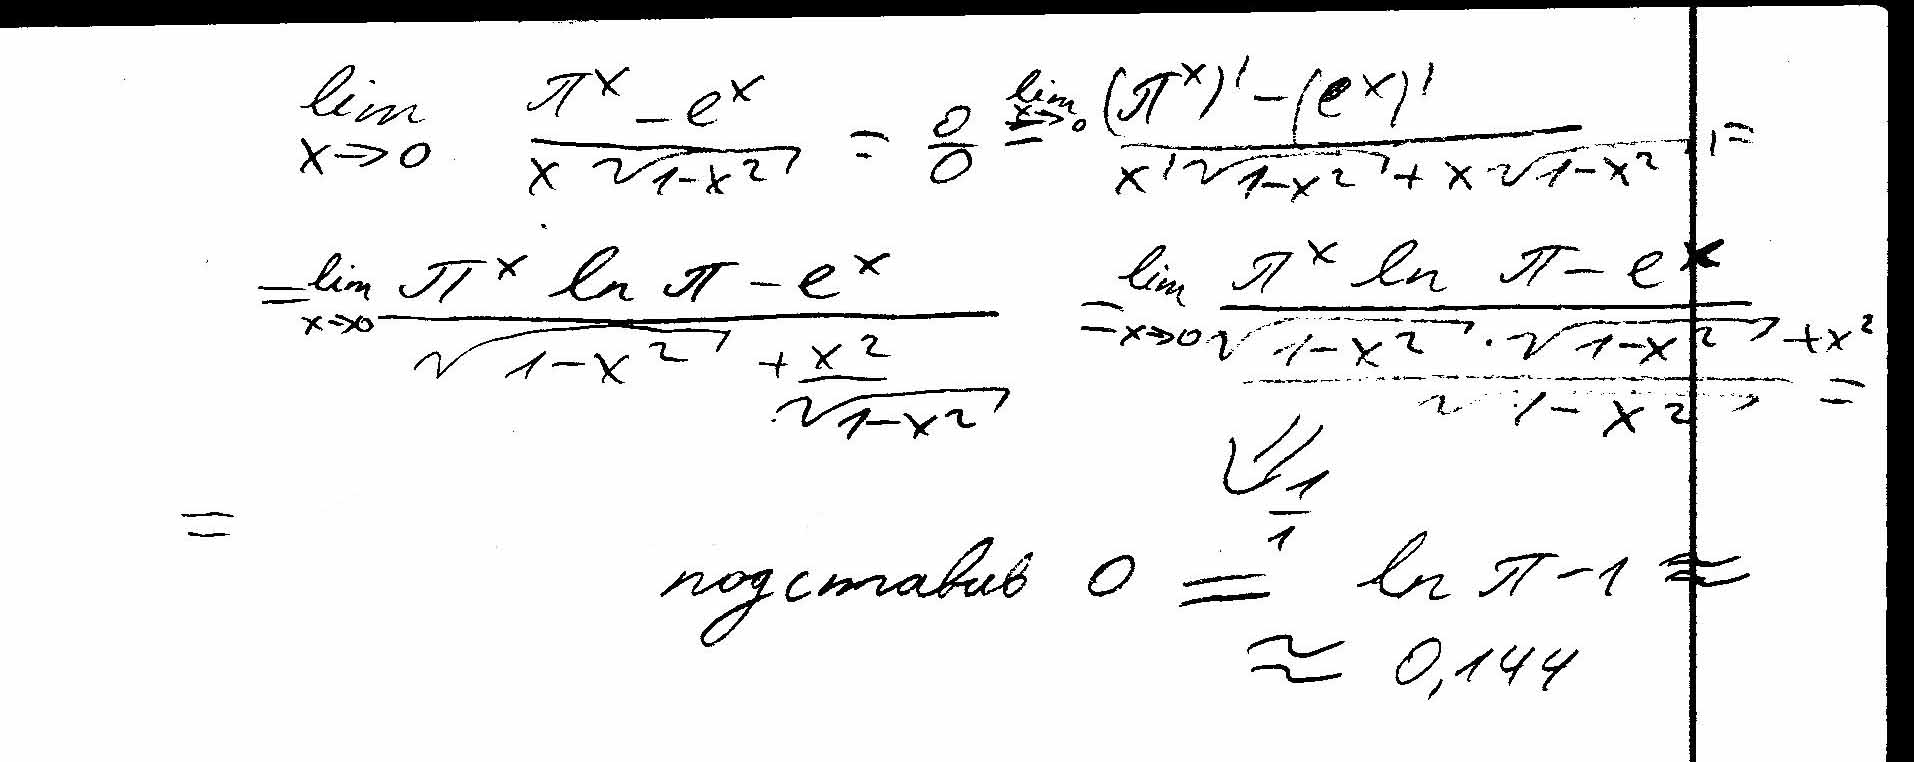 lim x→0 (π^x − e^x)/(x√(1−x²)) = 0/0 = lim x→0 ((π^x)' − (e^x)')/(x'√(1−x²) + x√(1−x²)') =
= lim x→0 (π^x ln π − e^x)/(√(1−x²) + x²/√(1−x²)) = lim x→0 (π^x ln π − e^x)/((√(1−x²) · √(1−x²) + x²)/√(1−x²)) =
⇓ 1/1
= подставив 0 = ln π − 1 ≈
≈ 0,144